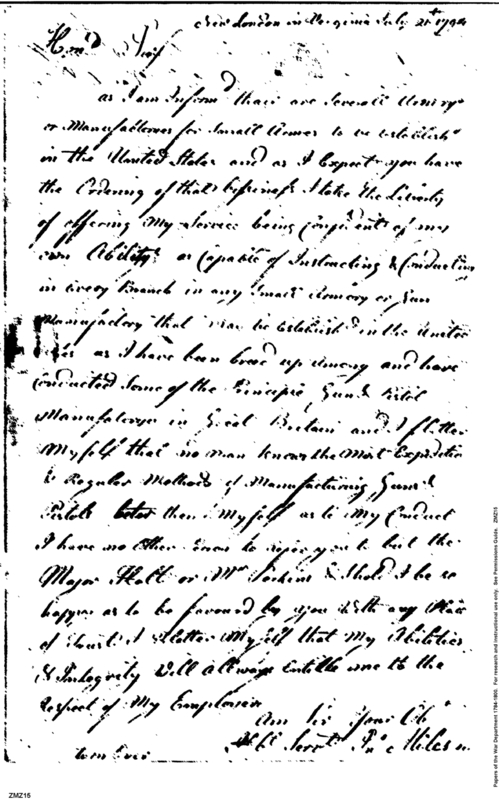 New London in Virginia July 21st 1794
Hon'd Sir
as I am Inform'd thair are Severall Armirys
or Manufactores for Small Armes to be establish'd
in the United States and as I Expect you have
the Ordering of that bissiness I take the Liberty
of offering My Service being Confident of my
own Ability as Capable of Instructing & Conducting
in Every Branch in any Small Armory or Gun
Manufactory that may be Establish'd in the United
as I have been bread up among and have
Conducted Some of the Principle Gun & Pistol
Manufactorys in Great Britain and I flatter
My self that no man knows the Most Expeditious
& Regular Methods of Manufacturing Guns &
Pistols better then My self as to My Conduct
I have no Other to you to but the
Major Holt or Mr & Shold I be so
happy as to be favoured by you With any Place
of Trust I flatter My self that My Abilities
& Integrity Will allways Entitle me to the
Respect of My Employers
Am Sir Your Ob
Hbl Servt Jno Miles
turn Over
ZMZ15
Papers of the War Department 1784-1800. For research and instructional use only. See Permissions Guide. ZMZ15